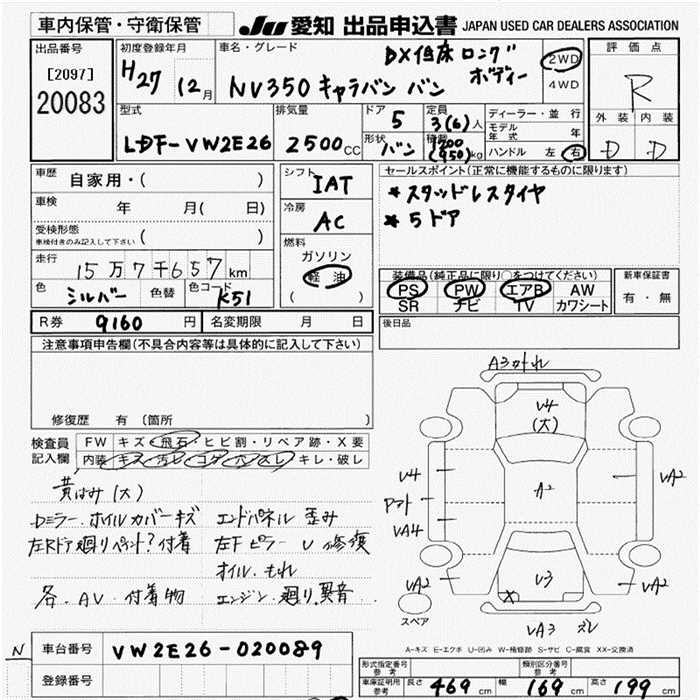 車内保管・守衛保管
JU 愛知 出品申込書 JAPAN USED CAR DEALERS ASSOCIATION
出品番号
[2097]
20083
初度登録年月
H27 12月
車名・グレード
DX低床 ロング
ボディー
NV350 キャラバン バン
2WD
4WD
評価点
R
外装 内装
D D
型式
LDF-VW2E26
排気量
2500CC
ドア
5
定員
3(6)人
形状
バン
積載
1200
(950)kg
ディーラー・並行
モデル年式 年
ハンドル 左 右
車歴
自家用・( )
車検
年 月( 日)
受検形態
車検付きのみ記入して下さい ( )
走行
15万7千657km
色
シルバー
色替
色コード
K51
シフト
IAT
冷房
AC
燃料
ガソリン
軽油
( )
セールスポイント(正常に機能するものに限ります)
*スタッドレスタイヤ
*5ドア
装備品(純正品に限り〇をつけてください)
PS PW エアB AW
SR ナビ TV カワシート
新車保証書
有・無
R券 9160 円
名変期限 月 日
後日品
注意事項申告欄(不具合内容等は具体的に記入して下さい)
修復歴 有 (箇所 )
検査員
記入欄
FW キズ・飛石・ヒビ割・リペア跡・X要
内装 キズ・汚レ・コゲ・穴・スレ・キレ・破レ
黄ばみ(大)
Dミラー・ホイルカバーキズ
左Rドア廻りペイント?付着
各・AV・付着物
エンドパネル 歪み
左Fピラー U 修復
オイル・もれ
エンジン・廻り異音
A3 かれ
V4
(大)
V4
アト
VA4
A2
VA2
VA2
V3
X
VA2
VA3 ズレ
スペア
A-キズ E-エクボ U-凹み W-補修跡 S-サビ C-腐食 XX-交換済
N
車台番号
VW2E26-020089
登録番号
形式指定番号
参考
類別区分番号
参考
車庫証明用
参考
長さ 469cm 幅 169cm 高さ 199cm